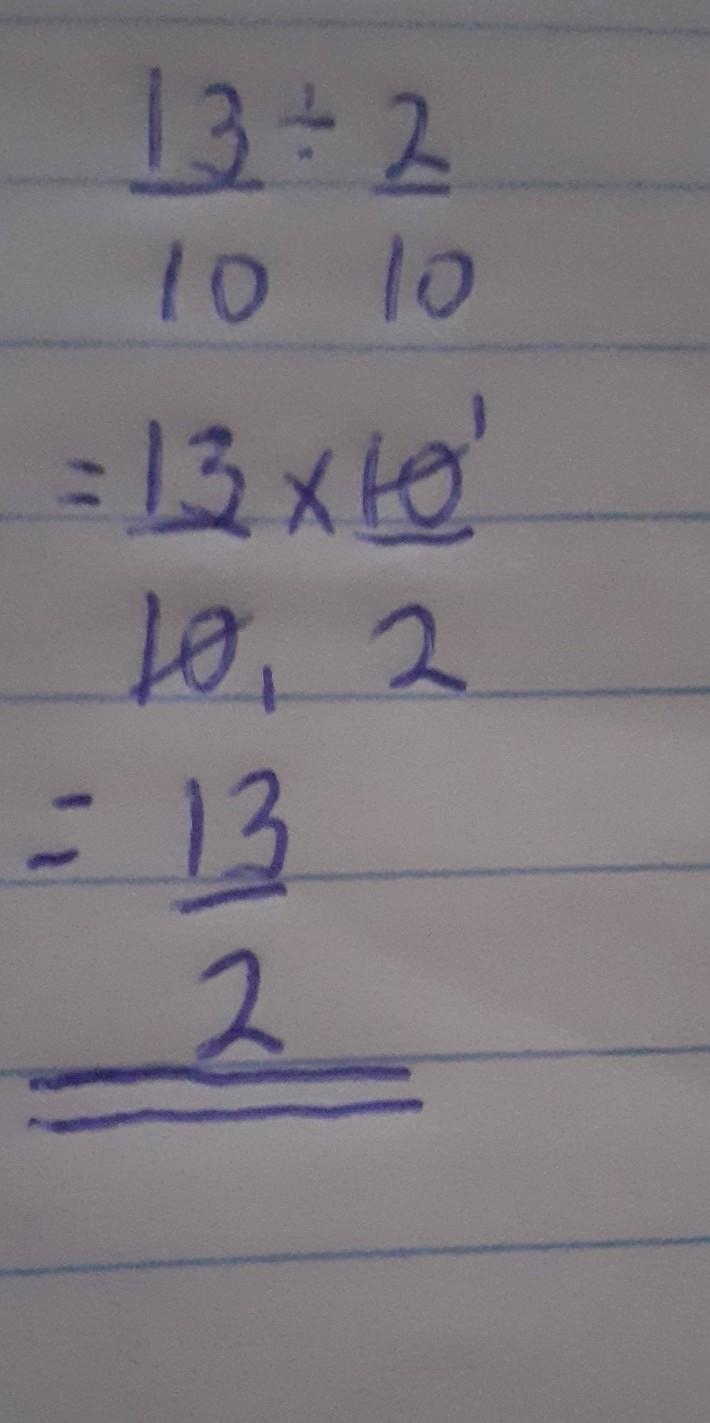 13 ÷ 2
10 10
= 13 x 10 1
10 1 2
= 13
2